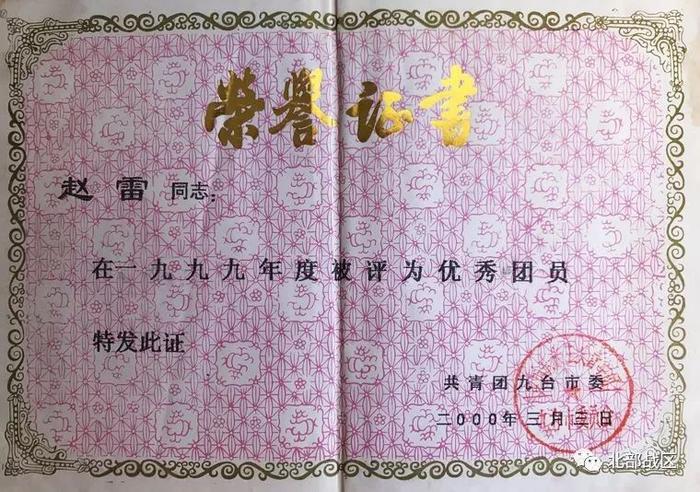 荣誉证书
赵雷同志：
在一九九九年度被评为优秀团员
特发此证
共青团九台市委
二000年三月三日
北部战区